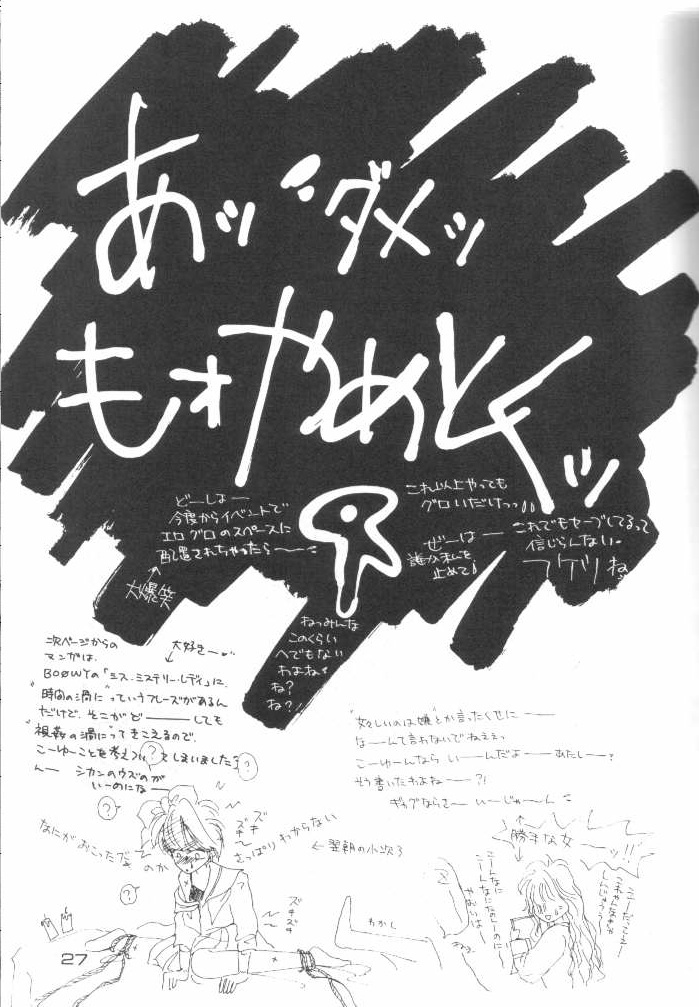 あッ ダメッ
もォやめとくッ
どーしよー
今度からイベントで
エログロのスペースに
配置されちゃったら〜〜〜
大爆笑
これ以上やっても
グロいだけっっ
ぜーはー
誰か私を
止めて
これでもセーブしてるって
信じらんない。
フケツね
ねっみんな
このくらい
へでもない
わよね
ね?
ね?
次ページからの
マンガは、
大好きー
BOØWYの「ミス・ミステリー・レディ」に、
"時間の渦に"っていうフレーズがあるん
だけど、そこがど———しても
"視姦の渦に"ってきこえるので、
こーゆーことを考えついてしまいました
んー シカンのウズのが
いーのにな—
"女々しいのは嫌"とか言ったくせに——
な——んて言わないでねェェっ
こーゆーんなら い——んだよ——あたし—— ?
そう書いたわよね——?!
ギャグならさ〜 い〜じゃ〜ん
勝手な女
ッ!!
なにがおこったのか
さっぱりわからない
ズキ
ズキ
←翌朝の小次郎
ズキ
ズキ
?
?
?
?
27